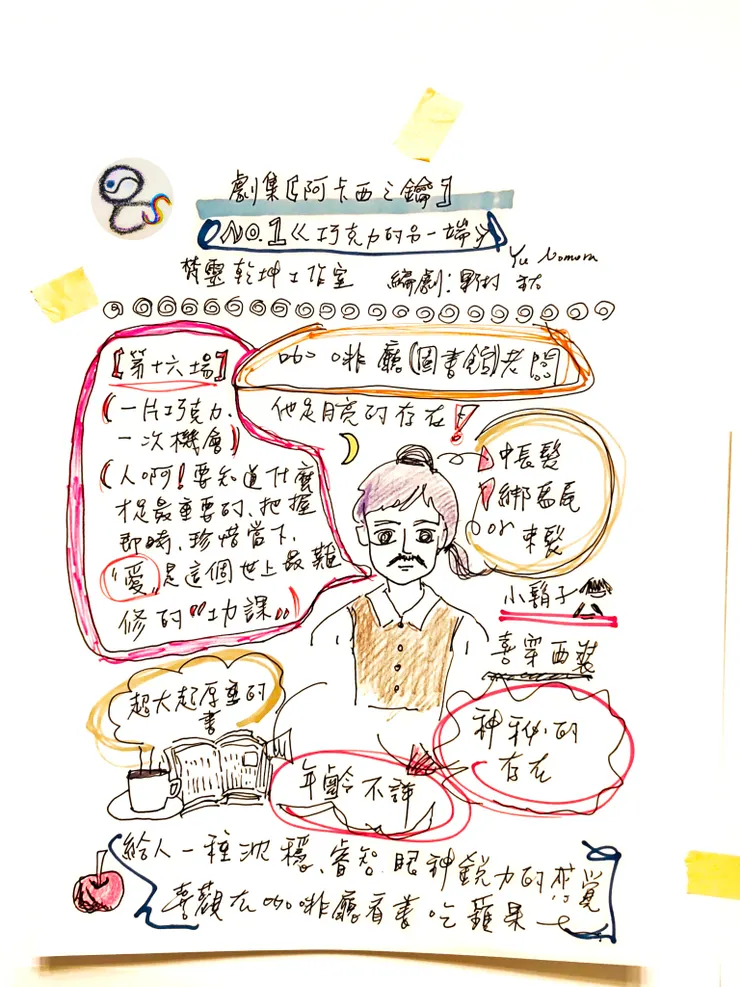 劇集【阿卡西之鑰】
NO.1《巧克力的另一端》
梵靈乾坤工作室 編劇:野村 祐
Yu Nomura
【第十六場】
(一片巧克力、
一次機會)
(人啊!要知道什麼
才是最重要的、把握
即時、珍惜當下、
"愛"是這個世上最難
修的"功課"。
咖啡廳(圖書館)老闆
他是月亮的存在!
中長髮
綁馬尾
or 束髮
小鬍子
喜穿西裝
神秘的
存在
超大超厚重的
書
年齡不詳
給人一種沈穩、睿智、眼神銳力的感覺
喜觀在咖啡廳看書吃蘋果